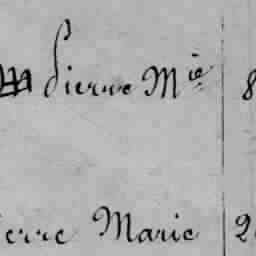 Pierre Mie 8
ierre Marie 2